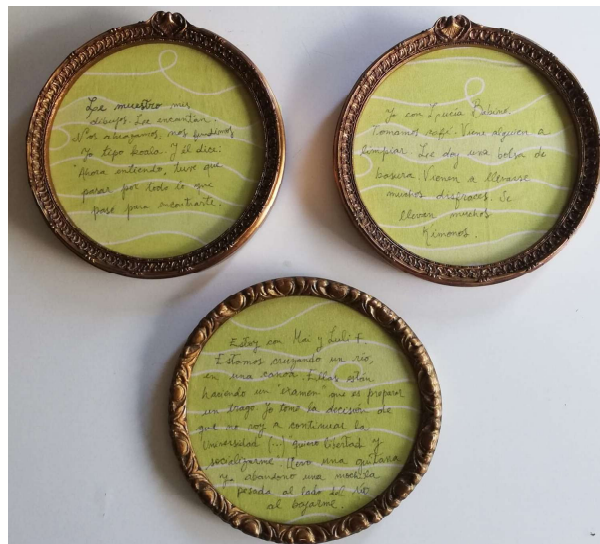 Lee muestro mis
dibujos. Lee encantan.
Nos abrazamos, nos fundimos
Yo tipo koala. Y él dice:
"Ahora entiendo, tuve que
pasar por todo lo que
pasé para encontrarte.
Yo con Lucía Babino.
Tomamos café. Viene alguien a
limpiar. Lee doy una bolsa de
basura. Vienen a llevarse
muchos disfraces. Se
llevan muchos
Kimonos.
Estoy con Mai y Luli F.
Estamos cruzando un río,
en una canoa. Ellas están
haciendo un "examen" que es preparar
un trago. Yo tomo la decisión de
que no voy a continuar la
Universidad (...) quiero libertad y
sociabilizarme. Llevo una guitarra
y abandono una mochila
pesada al lado del río
al bajarme.